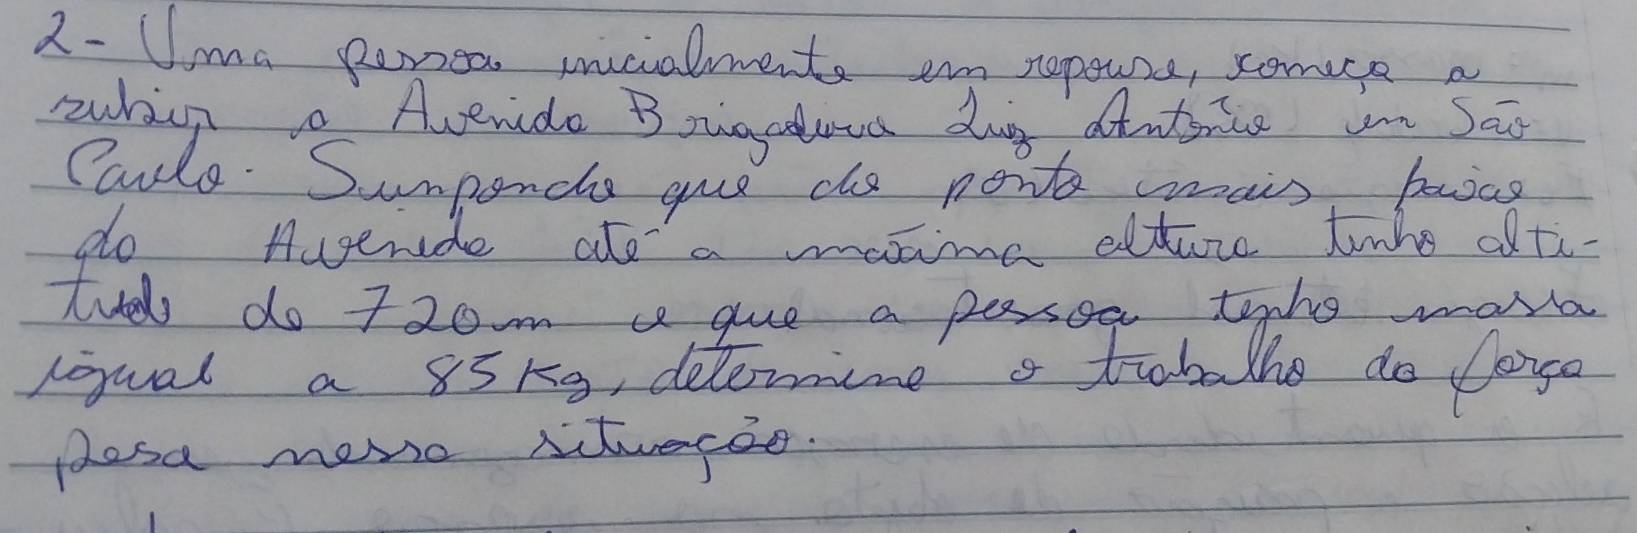 2- Uma pessoa inicialmente em repouso, começa a
subir a Avenida Brigadeiro Luiz Antônio em São
Paulo. Sunponda que do ponto mais baixo
da Avenida até a máxima altura tenha alti-
tude de 720m e que a pessoa tenha massa
igual a 85Kg, determine o trabalho da força
peso nessa situação.